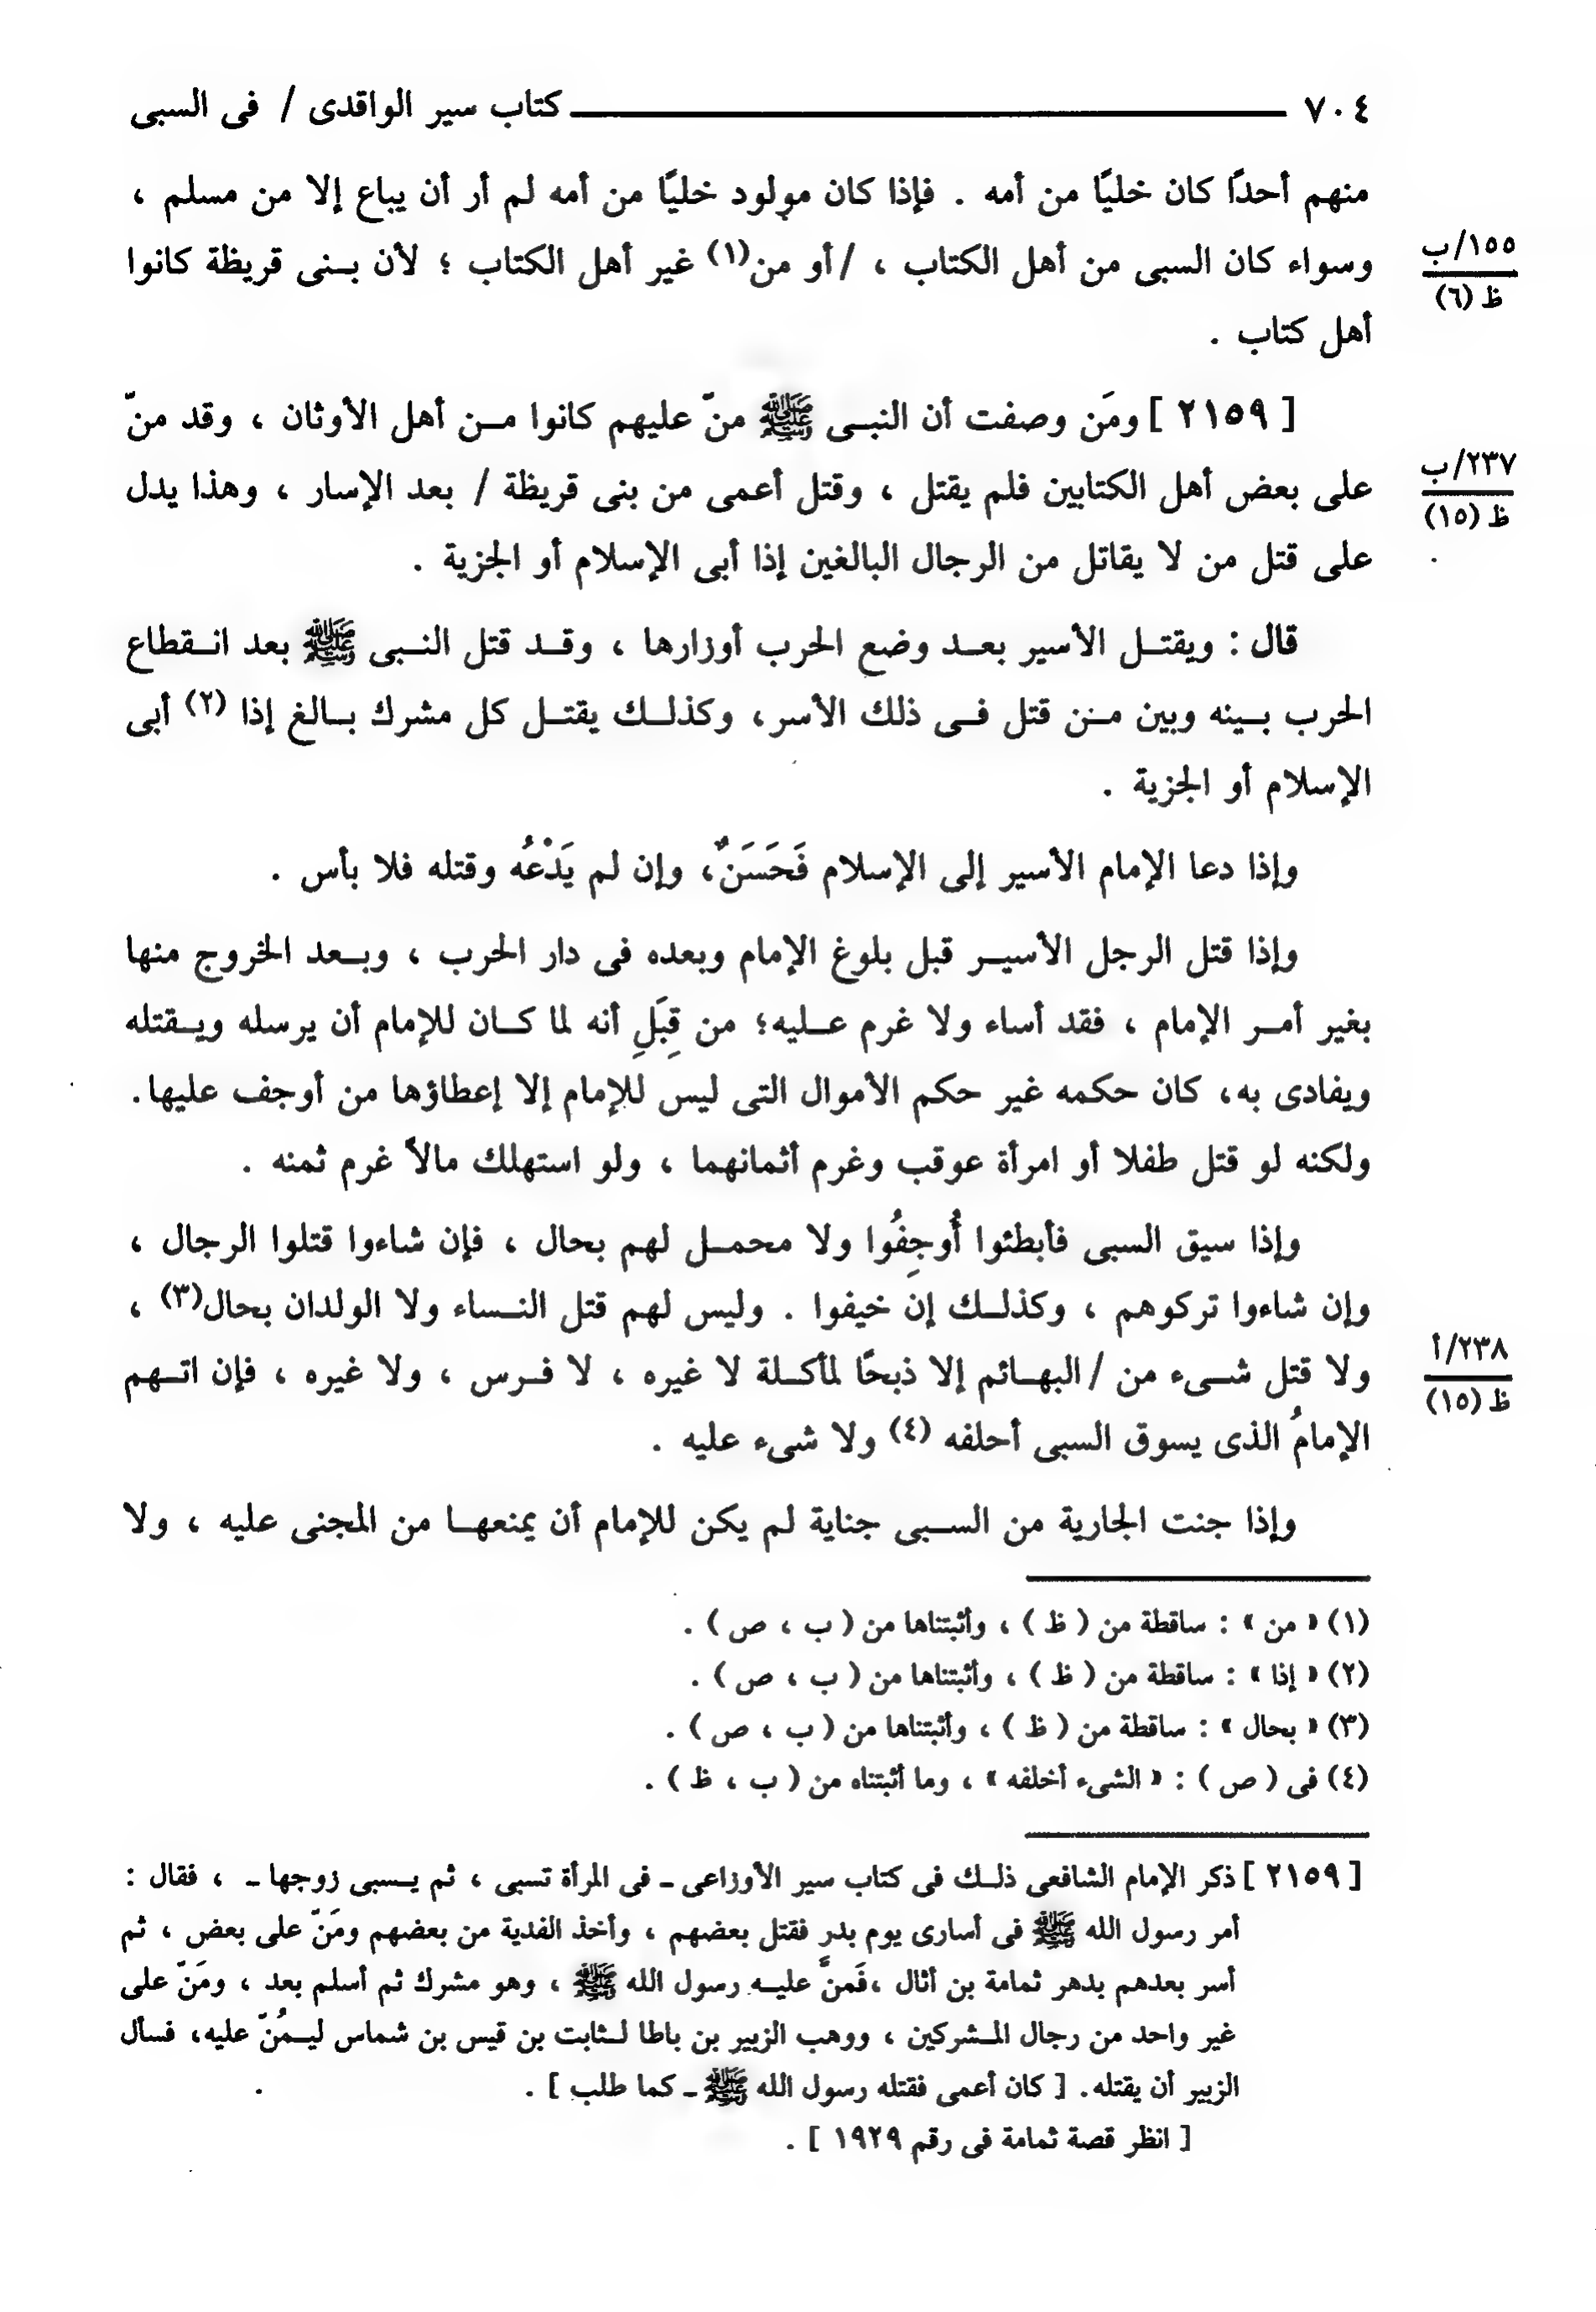 ٧٠٤ ــــــــــ كتاب سير الواقدى / فى السبى
منهم أحدًا كان خليًا من أمه . فإذا كان مولود خليًا من أمه لم أر أن يباع إلا من مسلم ،
وسواء كان السبى من أهل الكتاب ، /أو من(١) غير أهل الكتاب ؛ لأن بـنى قريظة كانوا
١٥٥/ب
ظ (٦)
أهل كتاب .
[ ٢١٥٩ ] ومَن وصفت أن النبـى ﷺ منّ عليهم كانوا مـن أهل الأوثان ، وقد منّ
على بعض أهل الكتابين فلم يقتل ، وقتل أعمى من بنى قريظة / بعد الإسار ، وهذا يدل
٢٣٧/ب
ظ (١٥)
على قتل من لا يقاتل من الرجال البالغين إذا أبى الإسلام أو الجزية .
قال : ويقتـل الأسير بعـد وضع الحرب أوزارها ، وقـد قتل النـبى ﷺ بعد انـقطاع
الحرب بـينه وبين مـن قتل فـى ذلك الأسر، وكذلـك يقتـل كل مشرك بـالغ إذا (٢) أبى
الإسلام أو الجزية .
وإذا دعا الإمام الأسير إلى الإسلام فَحَسَنٌ، وإن لم يَدْعُه وقتله فلا بأس .
وإذا قتل الرجل الأسيـر قبل بلوغ الإمام وبعده فى دار الحرب ، وبـعد الخروج منها
بغير أمـر الإمام ، فقد أساء ولا غرم عـليه؛ من قِبَلِ أنه لما كـان للإمام أن يرسله ويـقتله
ويفادى به، كان حكمه غير حكم الأموال التى ليس للإمام إلا إعطاؤها من أوجف عليها.
ولكنه لو قتل طفلا أو امرأة عوقب وغرم أثمانهما ، ولو استهلك مالاً غرم ثمنه .
وإذا سيق السبى فأبطئوا أُوجِفُوا ولا محمـل لهم بحال ، فإن شاءوا قتلوا الرجال ،
وإن شاءوا تركوهم ، وكذلـك إن خيفوا . وليس لهم قتل النـساء ولا الولدان بحال(٣) ،
ولا قتل شـىء من /البهـائم إلا ذبحًا لمأكـلة لا غيره ، لا فـرس ، ولا غيره ، فإن اتـهم
٢٣٨/أ
ظ (١٥)
الإمامُ الذى يسوق السبى أحلفه (٤) ولا شىء عليه .
وإذا جنت الجارية من السـبى جناية لم يكن للإمام أن يمنعهـا من المجنى عليه ، ولا
(١) « من » : ساقطة من ( ظ ) ، وأثبتناها من ( ب ، ص ) .
(٢) « إذا » : ساقطة من ( ظ ) ، وأثبتناها من ( ب ، ص ) .
(٣) « بحال » : ساقطة من ( ظ ) ، وأثبتناها من ( ب ، ص ) .
(٤) فى ( ص ) : « الشىء أخلفه » ، وما أثبتناه من ( ب ، ظ ) .
[ ٢١٥٩ ] ذكر الإمام الشافعى ذلـك فى كتاب سير الأوزاعى ـ فى المرأة تسبى ، ثم يـسبى زوجها ـ ، فقال :
أمر رسول الله ﷺ فى أسارى يوم بدر فقتل بعضهم ، وأخذ الفدية من بعضهم ومَنّ على بعض ، ثم
أسر بعدهم بدهر ثمامة بن أثال ،فَمنَّ عليـه رسول الله ﷺ ، وهو مشرك ثم أسلم بعد ، ومَنّ على
غير واحد من رجال المـشركين ، ووهب الزبير بن باطا لـثابت بن قيس بن شماس ليـمُنّ عليه، فسأل
الزبير أن يقتله. [ كان أعمى فقتله رسول الله ﷺ ـ كما طلب ] .
[ انظر قصة ثمامة فى رقم ١٩٢٩ ] .